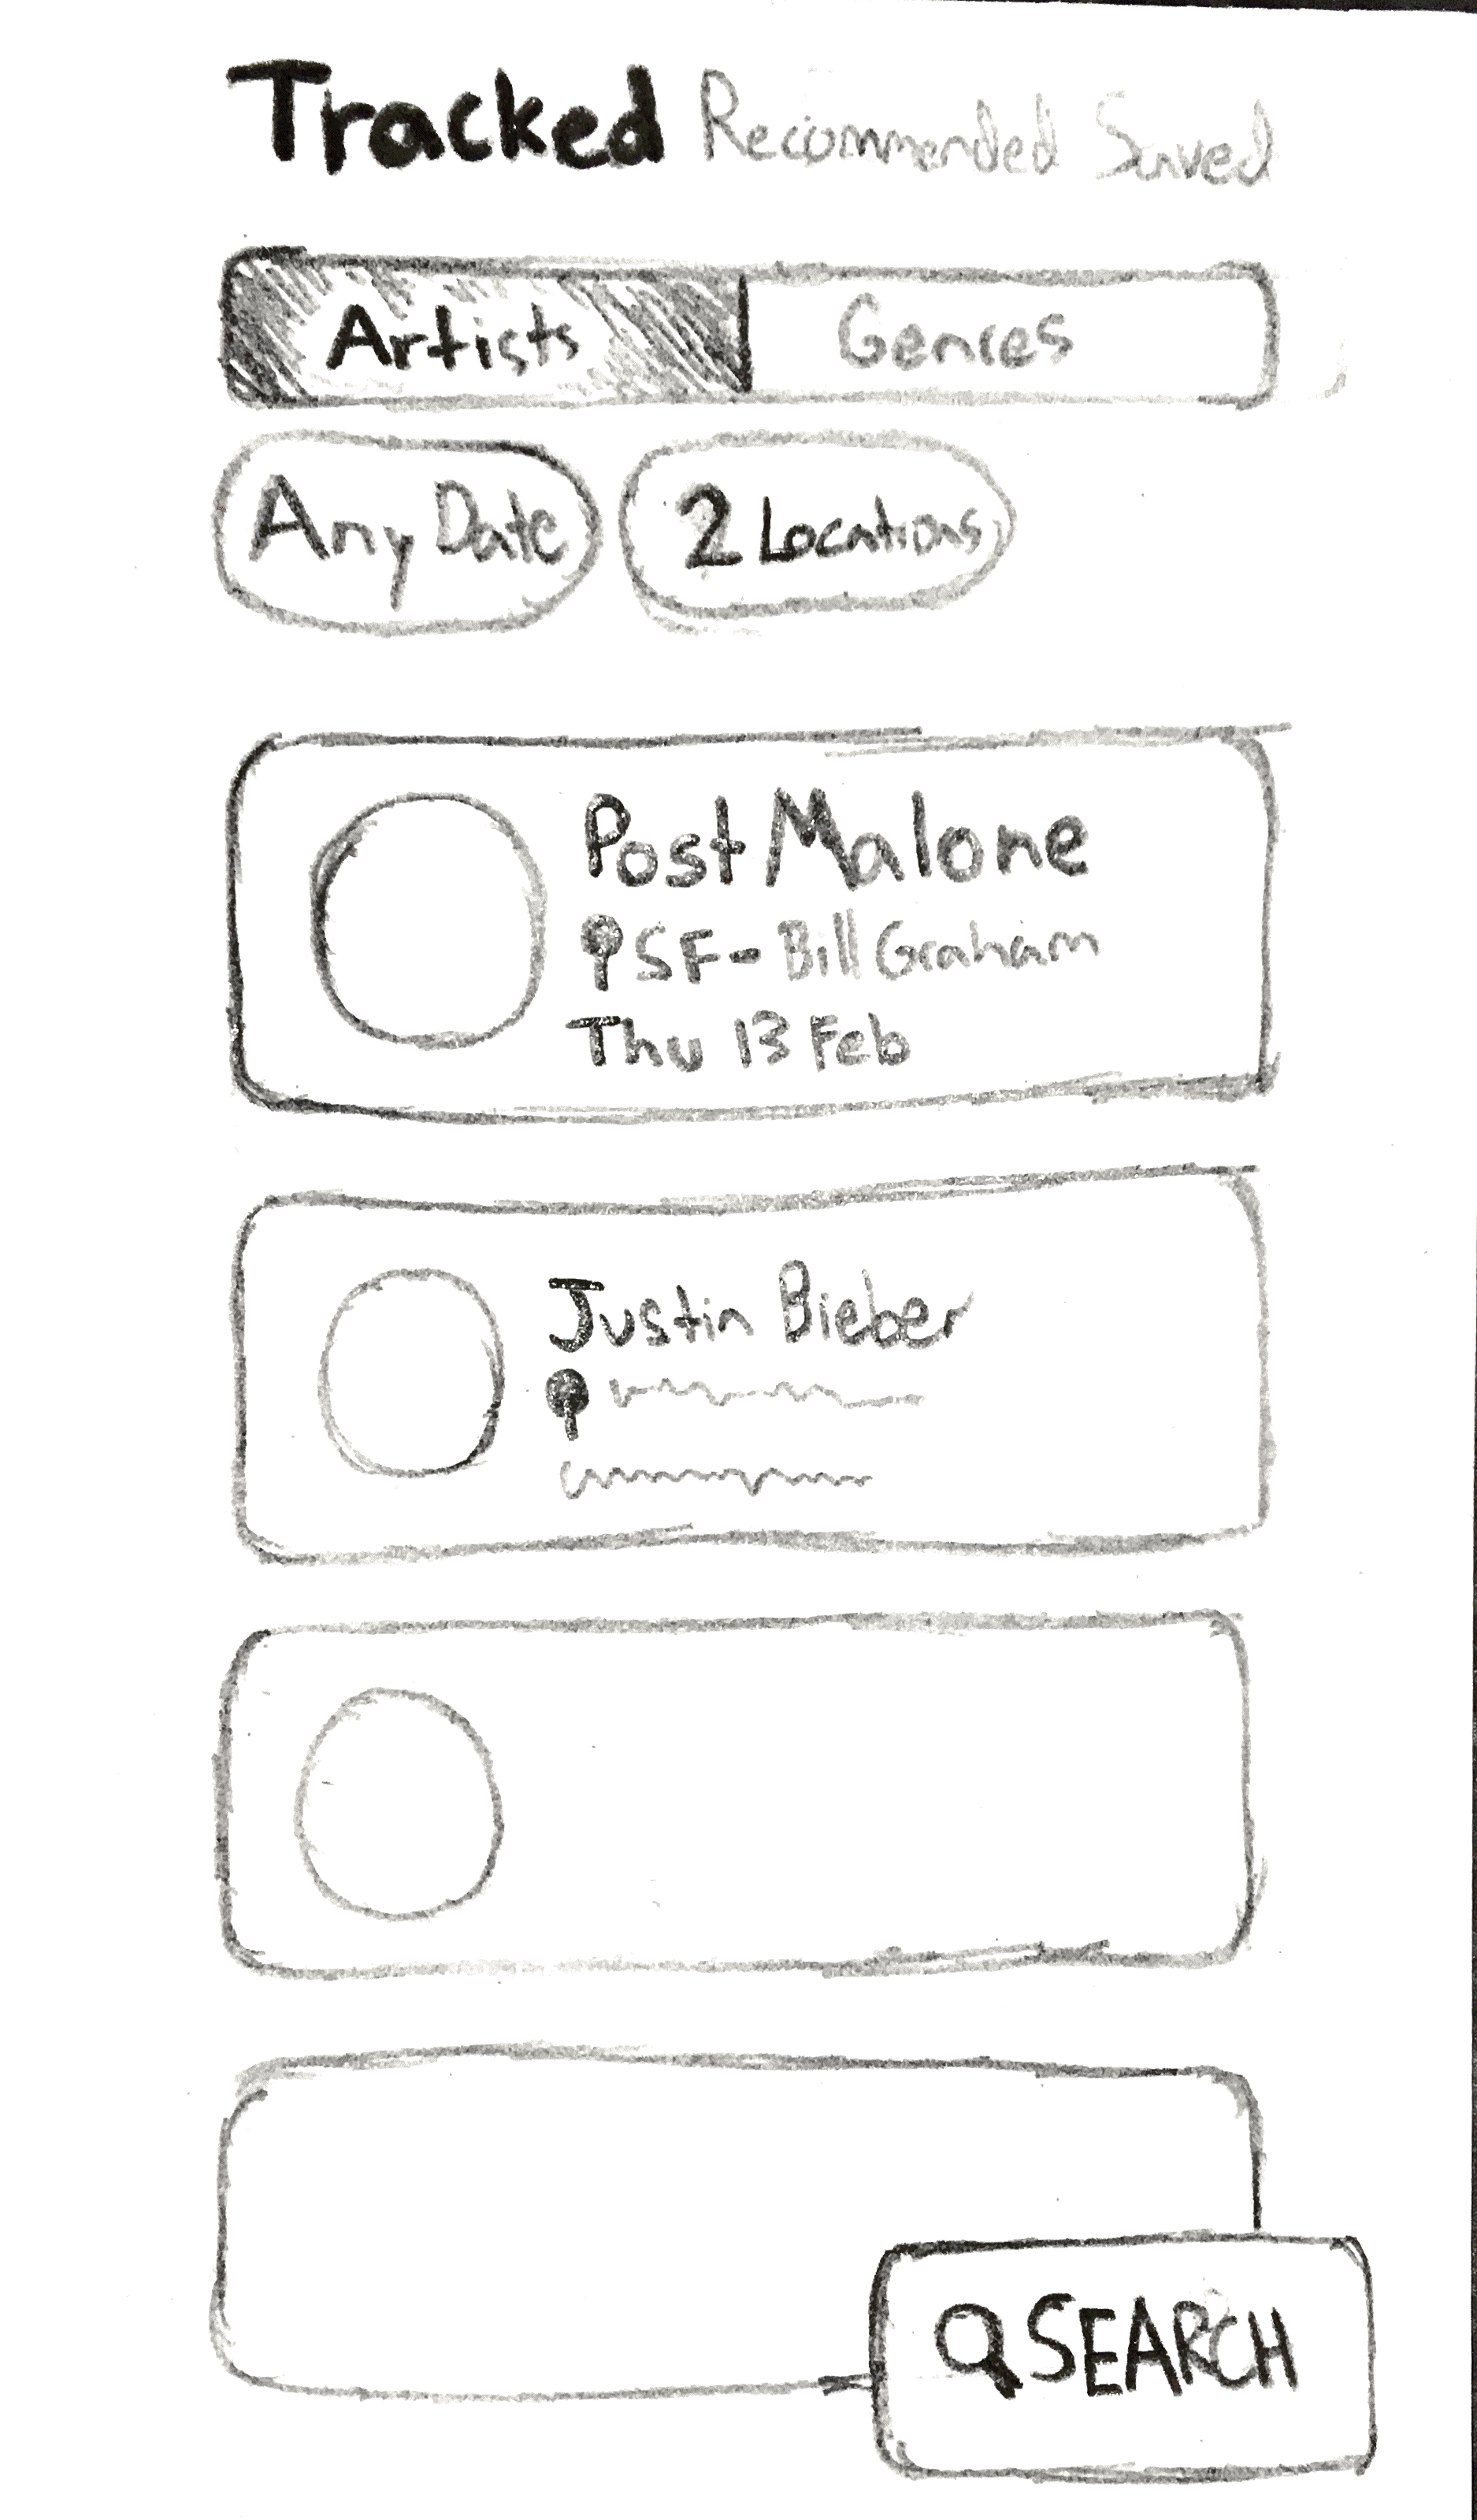 Tracked Recommended Saved
Artists Genres
Any Date 2 Locations
Post Malone
SF - Bill Graham
Thu 13 Feb
Justin Bieber
SEARCH